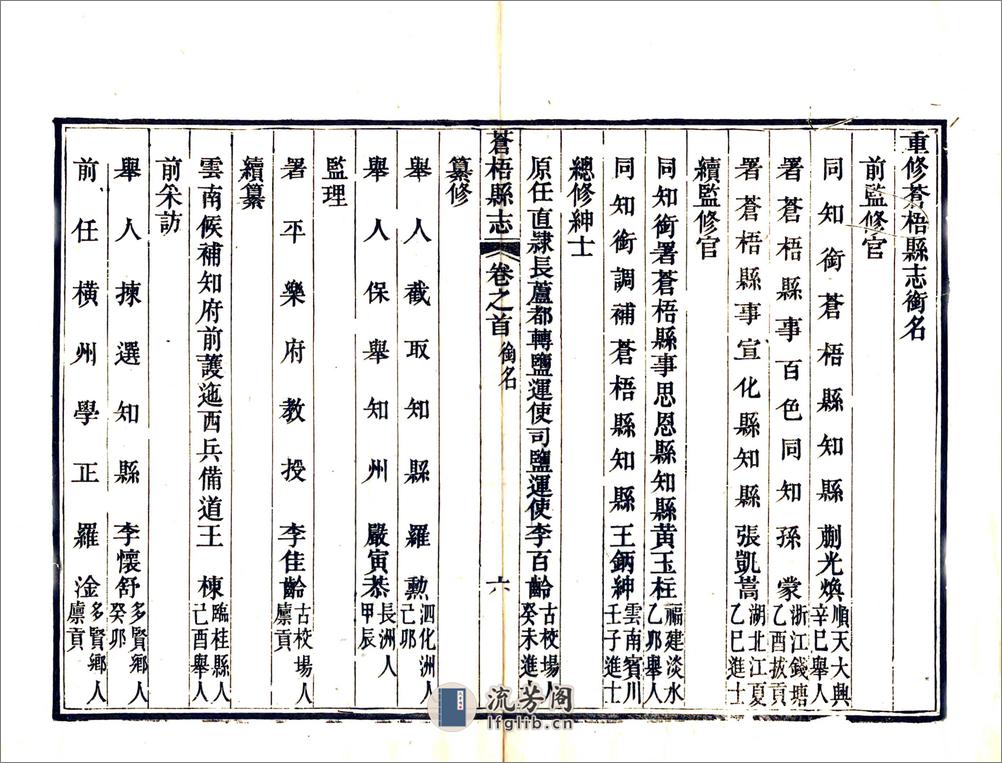 重修蒼梧縣志銜名
前監修官
同知銜蒼梧縣知縣蒯光煥順天大興辛巳舉人
署蒼梧縣事百色同知孫蒙浙江錢塘乙酉拔貢
署蒼梧縣事宣化縣知縣張凱嵩湖北江夏乙巳進士
續監修官
同知銜署蒼梧縣事思恩縣知縣黃玉柱福建淡水乙卯舉人
同知銜調補蒼梧縣知縣王鈵紳雲南賓川壬子進士
總修紳士
原任直隸長蘆都轉鹽運使司鹽運使李百齡古校場人癸未進士
蒼梧縣志 卷之首 銜名 六
纂修
舉人截取知縣羅勲泗化洲人己卯
舉人保舉知州嚴寅恭長洲人甲辰
監理
署平樂府教授李佳齡古校場人廩貢
續纂
雲南候補知府前護迤西兵備道王棟臨桂縣人己酉舉人
前采訪
舉人揀選知縣李懷舒多賢鄉人癸卯
前任橫州學正羅淦多賢鄉人廩貢
流芳阁
lfglib.cn